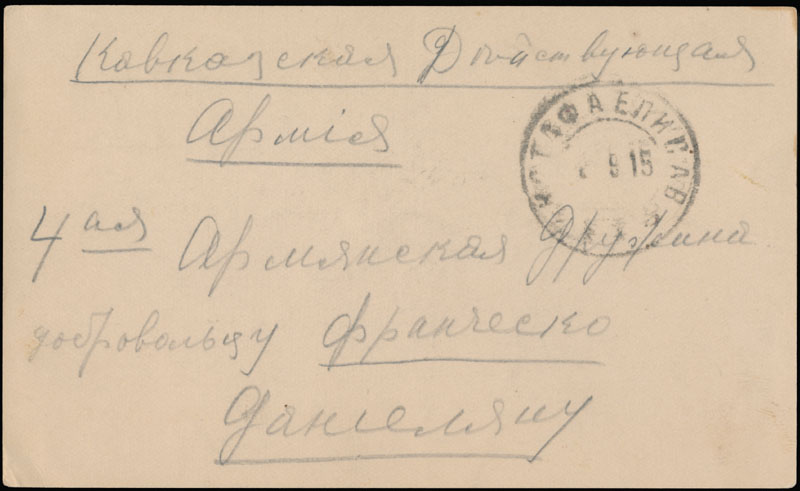 Кавказская Дѣйствующая
Армія
4ая Армянская дружина
добровольцу Франческо
Даніеляну
ЕЛИСАВ
9 15